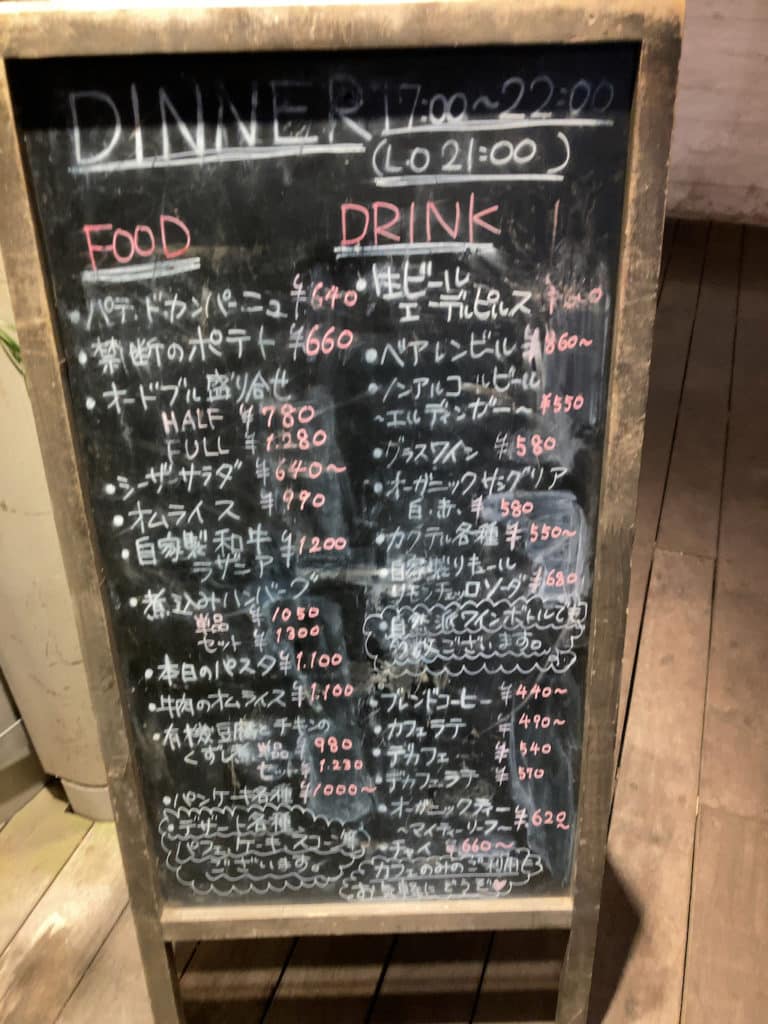 DINNER 17:00~22:00
(LO 21:00)
FOOD
・パテ・ド・カンパーニュ ¥640
・禁断のポテト ¥660
・オードブル盛り合せ
HALF ¥780
FULL ¥1.280
・シーザーサラダ ¥640~
・オムライス ¥990
・自家製和牛
ラザニア ¥1200
・煮込みハンバーグ
単品 ¥1050
セット ¥1300
・本日のパスタ ¥1.100
・牛肉のオムライス ¥1.100
・有機豆腐とチキンの
くずし煮 単品 ¥980
セット ¥1.230
・パンケーキ各種 ¥1000~
・デザート各種、
パフェ、ケーキ、スコーン等
ございます。
DRINK
・生ビール
エーデルピルス
・ベアレンビール ¥860~
・ノンアルコールビール
~エルディンガー~ ¥550
・グラスワイン ¥580
・オーガニックサングリア
白・赤 ¥580
・カクテル各種 ¥550~
・自家製リキュール
リモンチェッロソーダ ¥680
・自然派ワインボトルでも
ございます。
・ブレンドコーヒー ¥440~
・カフェラテ ¥490~
・デカフェ ¥540
・デカフェラテ ¥570
・オーガニックティー
~マイティーリーフ~ ¥620~
・チャイ ¥660~
カフェのみのご利用も
お気軽にどうぞ♥